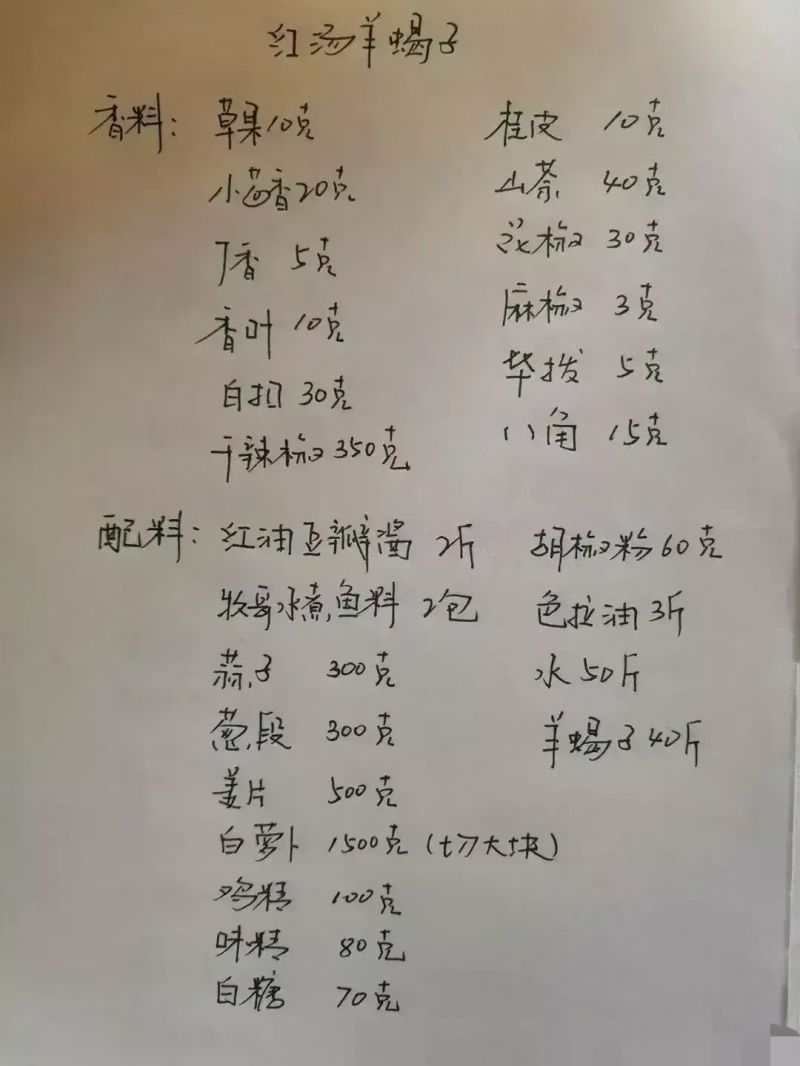 红汤羊蝎子
香料: 草果10克 桂皮 10克
小茴香20克 山奈 40克
丁香 5克 花椒 30克
香叶 10克 麻椒 3克
白扣 30克 毕拨 5克
干辣椒350克 八角 15克
配料: 红油豆瓣酱 2斤 胡椒粉60克
牧哥水煮鱼料 2包 色拉油3斤
蒜子 300克 水50斤
葱段 300克 羊蝎子40斤
姜片 500克
白萝卜 1500克(切大块)
鸡精 100克
味精 80克
白糖 70克